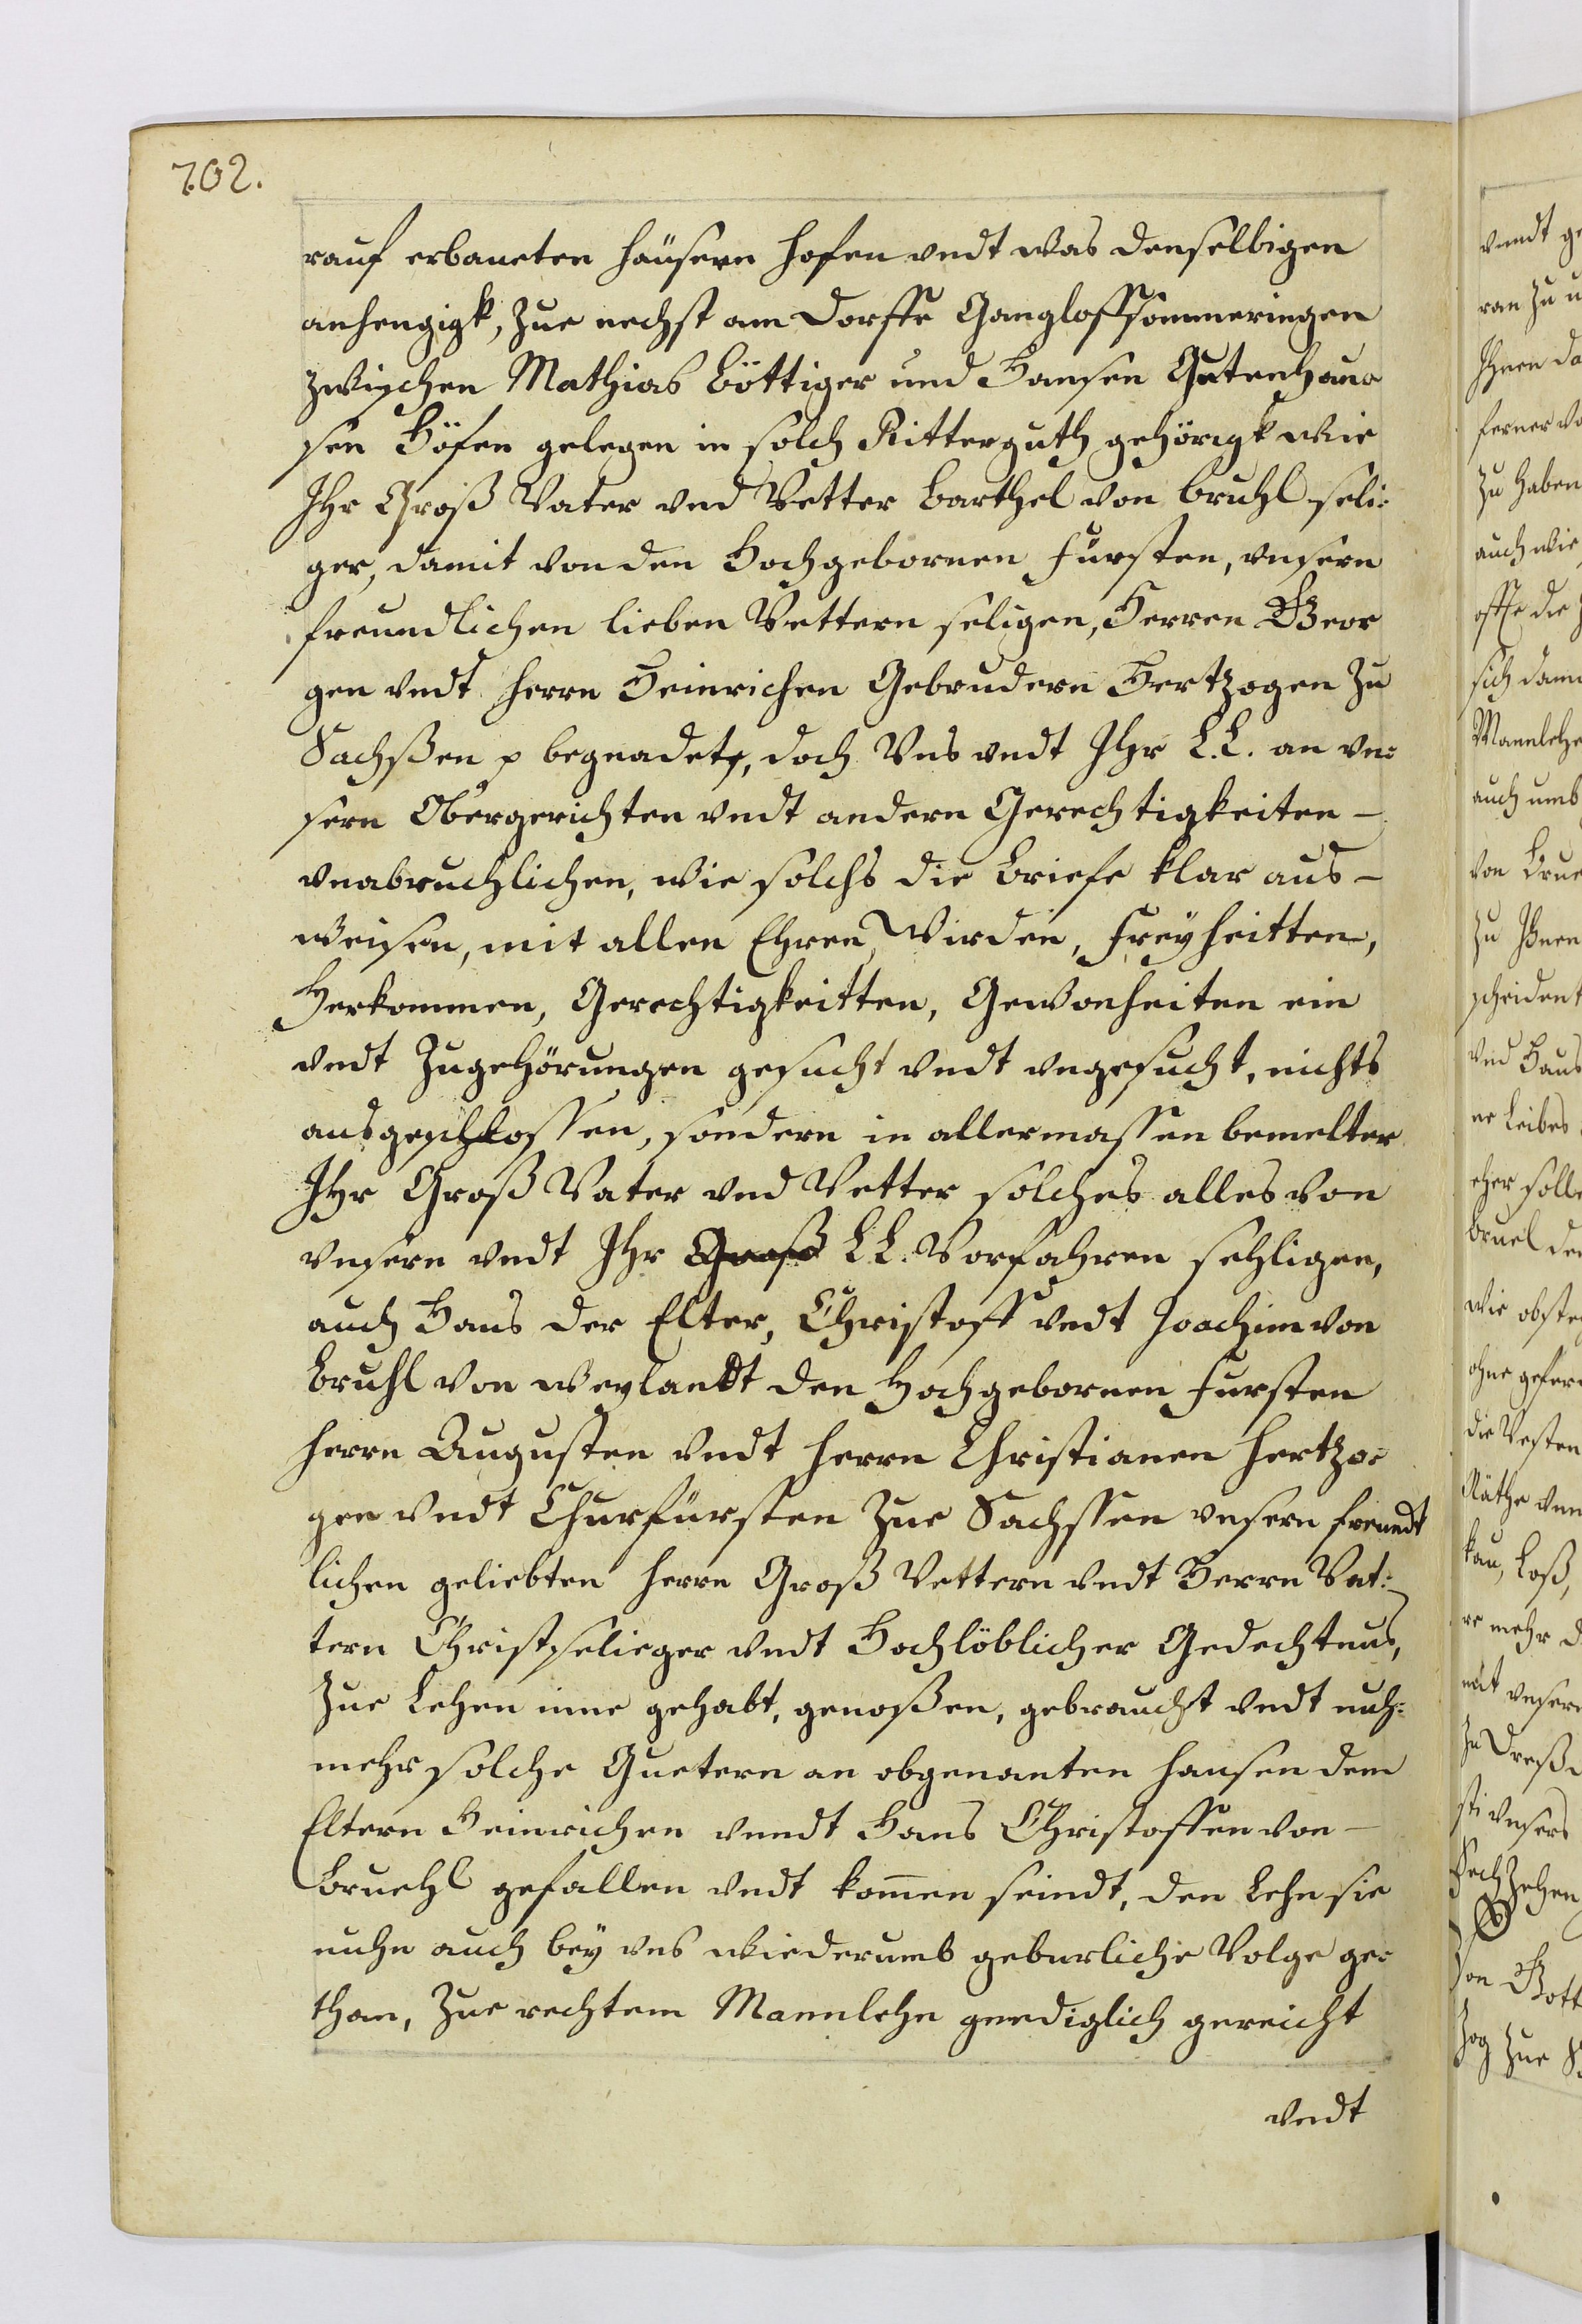 702.
rauf erbaueten häusern hofen vndt was denselbigen
anhengigk, zue nechst am Dorffe Gangloffsömmeringen
zwischen Mathias Böttiger und Hansen Gutenhau-
sen Höfen gelegen in solch Ritterguth gehörigk wie
Ihr Groß Vater vnd Vetter Barthel von Bruhl seli:
ger, damit von den Hochgebornen Fürsten, vnsern
freundlichen lieben Vettern seligen, Herren Geor
gen vndt Herrn Heinrichen Gebrudern Hertzogen zu
Sachßen p begnadet, doch Vns vndt Ihr L.L. an vn:
sern Obergerichten vndt andern Gerechtigkeiten –
vnabruchlichen, wie solchs die Briefe klar aus –
weisen, mit allen Ehren, Wirden, Freyheitten,
Herkommen, Gerechtigkeitten, Gewonheiten ein
vndt Zugehörungen gesucht vndt vngesucht, nichts
ausgeschlossen, sondern in allermassen bemelter
Ihr Groß Vater vnd Vetter solches alles von
vnsern vndt Ihr Groß L.L. Vorfahren sehligen,
auch Hans der Elter, Christoff vndt Joachim von
Bruhl von weylandt den Hochgebornen Fursten
Herrn Augusten vndt Herrn Christianen Hertzo:
gen vndt Churfürsten Zue Sachssen vnsern freundt
lichen geliebten Herrn Groß Vettern vndt Herrn Vet:
tern Christselieger vndt Hochlöblicher Gedechtnus,
Zue Lehen inne gehabt, genoßen, gebraucht vndt nuh:
mehr solche Guetern an obgenanten Hansen dem
Eltern Heinrichen vnndt Hans Christoffen von –
Bruehl gefallen vndt kommen seindt, den Lehn sie
nuhn auch bey vns wiederumb geburliche Volge ge:
than, Zue rechtem Mannlehn gnediglich gereicht
vndt
vnndt ge
ran zu
Ihnen da
ferner
zu haben
auch wie
offe die
sich dann
Mannlehn
auch umb
von Brue
zu Ihnen
scheident
vnd Hans
ne Leibes
eher solle
Bruel de
wie obste
ohne gefer
die Vesten
Räthe vnn
kau, Loß,
re mehr d
mit vnsere
Zu Dreß
sti vnsers
Sechzehen
Von Gott
zog zue S